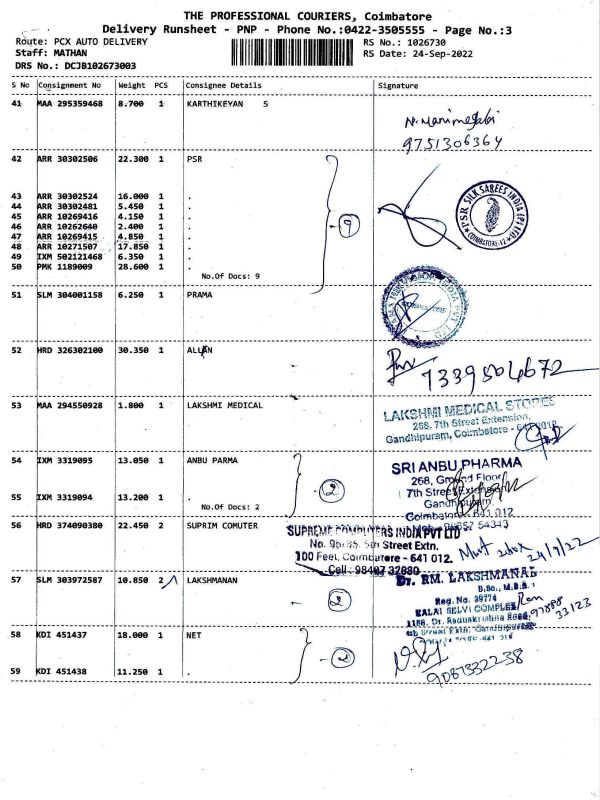 THE PROFESSIONAL COURIERS, Coimbatore
Delivery Runsheet - PNP - Phone No.:0422-3505555 - Page No.:3
Route: PCX AUTO DELIVERY RS No.: 1026730
Staff: MATHAN RS Date: 24-Sep-2022
DRS No.: DCJB102673003
S No Consignment No Weight PCS Consignee Details Signature
41 MAA 295359468 8.700 1 KARTHIKEYAN S
9751306364
42 ARR 30302506 22.300 1 PSR
43 ARR 30302524 16.000 1 .
44 ARR 30302481 5.450 1 .
45 ARR 10269416 4.150 1 .
46 ARR 10262640 2.400 1 .
47 ARR 10269415 4.850 1 .
48 ARR 10271507 17.850 1 .
49 IXM 502121468 6.350 1 .
50 PMK 1189009 28.600 1 .
No.Of Docs: 9
9
PSR SILK SAREES INDIA (P) LTD
COIMBATORE-12
51 SLM 304001158 6.250 1 PRAMA
52 HRD 326302100 30.350 1 ALLAN
7339504672
53 MAA 294550928 1.800 1 LAKSHMI MEDICAL
LAKSHMI MEDICAL STORES
268, 7th Street Extension,
Gandhipuram, Coimbatore - 641 012
54 IXM 3319095 13.050 1 ANBU PARMA
55 IXM 3319094 13.200 1 .
No.Of Docs: 2
2
SRI ANBU PHARMA
268, Ground Floor
7th Street Extension
Gandhipuram
Coimbatore - 641 012
56 HRD 374090380 22.450 2 SUPRIM COMUTER
SUPREME COMPUTERS INDIA PVT LTD
5th Street Extn.
100 Feet, Coimbatore - 641 012.
Cell : 98407 32880
24/9/22
57 SLM 303972587 10.850 2 LAKSHMANAN
2
Dr. RM. LAKSHMANAN
B.Sc., M.B.B.S
Reg. No. 39774
KALAI SELVI COMPLEX
1188, Dr. Radhakrishna Road,
58 KDI 451437 18.000 1 NET
59 KDI 451438 11.250 1 .
2
9087332238